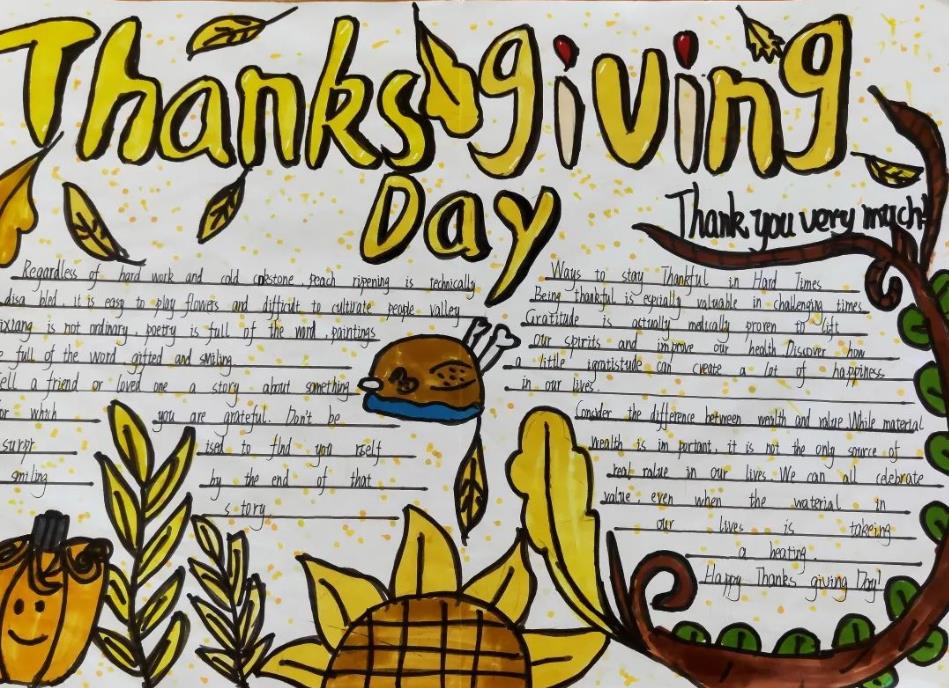 Thanksgiving
Day
Thank you very much!
Regardless of hard work and cold cokstone, peach ripening is rechnically
disa bled, it is easy to play flowers and diffidt to cultivate people. valley
is not ordinary, poetry is full of the word, paintings
full of the word gifted and smiling
a friend or loved one a story about something
which you are grateful. Don't be
ised to find you rself
smiling by the end of that
s tory
Ways to stay Thankful in Hard Times
Being thankful is espially valuable in challenging times.
Gratitude is actually medically proven to lift
our spirits and improve our health Discover how
a little can create a lot of happiness
in our lives.
Consider the difference between wealth and value. While material
wealth is im portant, it is not the only source of
real value in our lives. We can all celebrate
value, even when the material in
our lives is takeing
a beating
Happy Thanks giving Day!